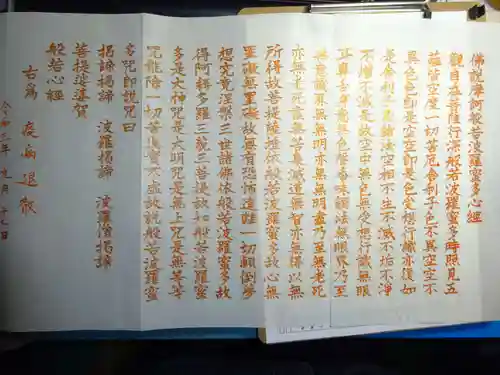 佛説摩訶般若波羅蜜多心經
觀自在菩薩行深般若波羅蜜多時照見五
蘊皆空度一切苦厄舎利子色不異空空不
異色色即是空空即是色受想行識亦復如
是舎利子是諸法空相不生不滅不垢不淨
不増不減是故空中無色無受想行識無眼
耳鼻舌身意無色聲香味觸法無眼界乃至
無意識界無無明亦無無明盡乃至無老死
亦無老死盡無苦集滅道無智亦無得以無
所得故菩提薩埵依般若波羅蜜多故心無
罣礙無罣礙故無有恐怖遠離一切顛倒夢
想究竟涅槃三世諸佛依般若波羅蜜多故
得阿耨多羅三藐三菩提故知般若波羅蜜
多是大神咒是大明咒是無上咒是無等等
咒能除一切苦眞實不虚故説般若波羅蜜
多咒即説咒曰
掲諦掲諦 波羅掲諦 波羅僧掲諦
菩提娑婆賀
般若心經
右為 疫病退散
令和二年 九月 十九日